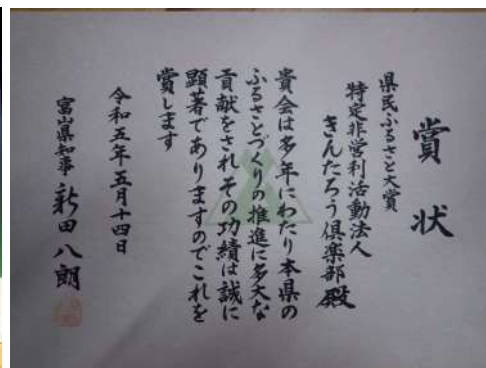 賞状
県民ふるさと大賞
特定非営利活動法人
きんたろう倶楽部殿
貴会は多年にわたり本県の
ふるさとづくりの推進に多大な
貢献をされその功績は誠に
顕著でありますのでこれを
賞します
令和五年五月十四日
富山県知事 新田八朗